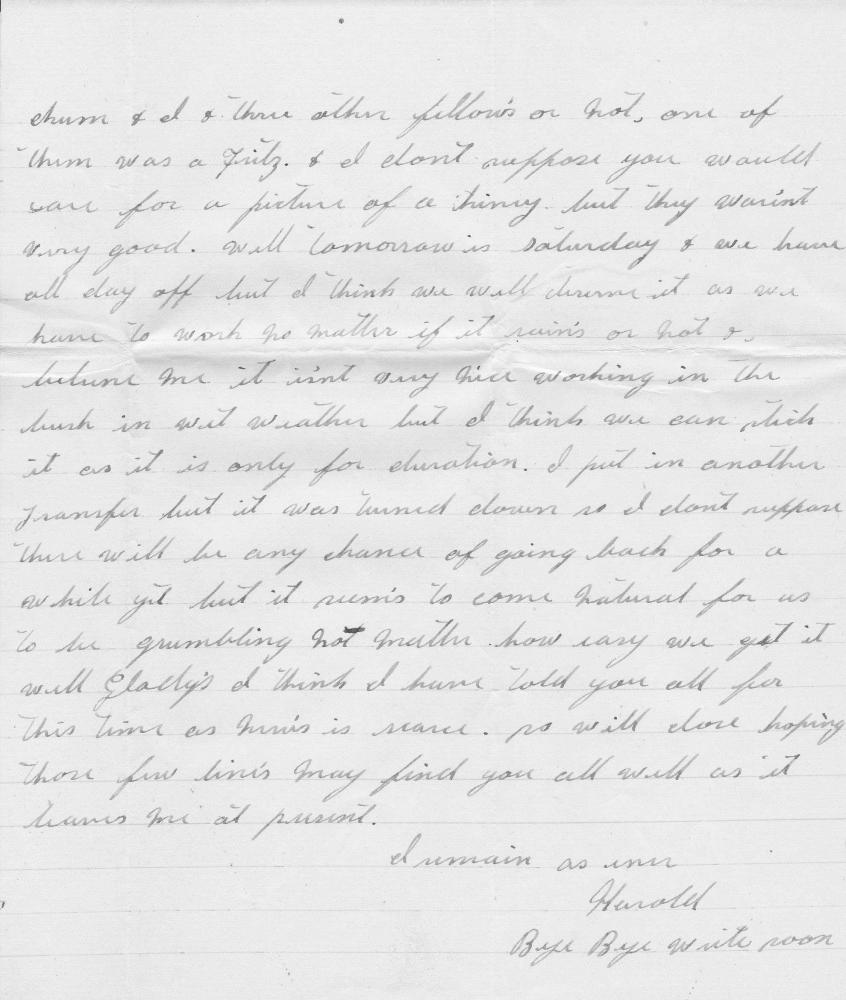 chum & I & three other fellow's or not, one of
them was a Fritz. & I dont suppose you would
care for a picture of a thing but they warint
very good. well tomorrow is saturday & we have
all day off but I think we well deserve it as we
have to work no matter if it rain's or not &
beleive me it isnt very nice working in the
bush in wet weather but I think we can stick
it as it is only for duration. I put in another
Transfer but it was turned down so I dont suppose
there will be any chance of going back for a
while yet but it seem's to come natural for us
to be grumbling not matter how easy we get it
well Glady's I think I have told you all for
this time as new's is scarce. so will close hoping
those few line's may find you all well as it
leaves me at present.
I remain as ever
Harold
Bye Bye write soon